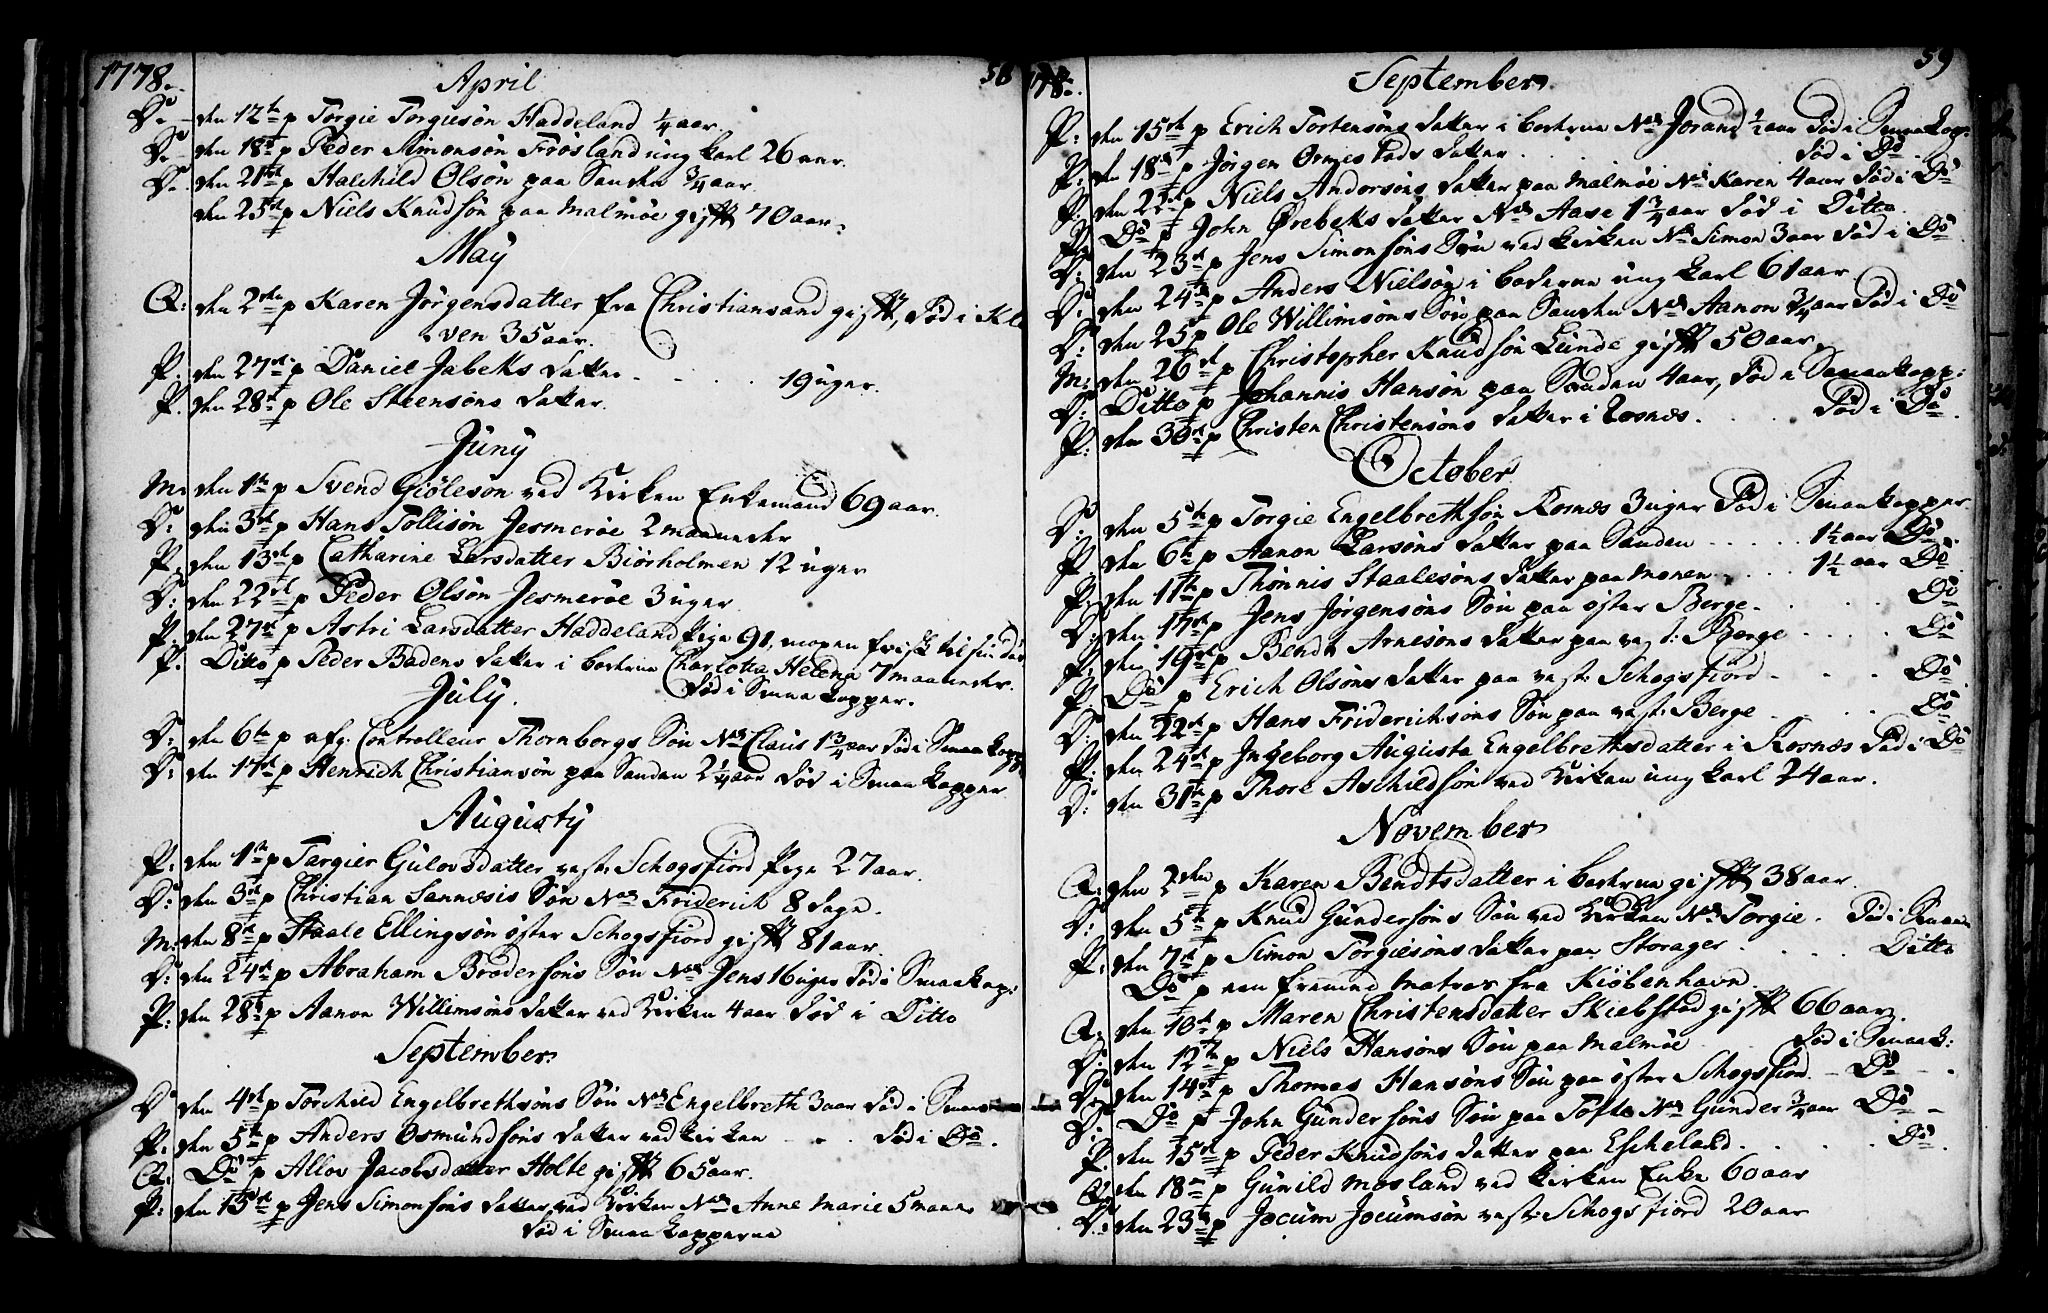 1778.
58
April
D. den 12te p Torgie Torgiesøn Haddeland 1/4 aar.
D. den 18de p Peder Simonsøn Frøsland ung Karl 26 aar.
D. den 21de p Halchild Olsøn paa Sanden 3/4 aar.
den 25de p Niels Knudsøn paa Malmøe gift 70 aar.
May
Q: den 2den p Karen Jørgensdatter fra Christiansand gift, død i Kle
ven 35 aar.
P. den 27de p Daniel Jabeks datter . . . . 19 uger.
P. den 28de p Ole Steensøns datter.
Juny
M: den 1te p Svend Giølesøn ved Kirken Enkemand 69 aar.
D: den 3de p Hans Tollisøn Jesmerøe 2 maaneder
P. den 13de p Catharine Larsdatter Biørholmen 12 uger
D: den 22de p Peder Olsøn Jesmerøe 3 uger
P. den 27de p Astri Larsdatter Haddeland Pige 91, mogen frisk til sin død
P. Ditto p Peder Badens datter i Byen Charlotta Helena 7 maaneder.
død i Smaakopper.
July.
D: den 6te p afg: Controlleur Thornborgs Søn Nas Claus 1 3/4 aar død i Smaakopp
D: den 17de p Henrich Christiansøn paa Sanden 2 1/4 aar død i Smaakopper
Augusty
P: den 1te p Targier Gulovsdatter vest: Schogsfiord Pige 27 aar.
D: den 3de p Christian Sannesis Søn Nas Friderich 8 dage.
M: den 8de p Staale Ellingsøn øster Schogsfiord gift 81 aar.
D: den 24de p Abraham Brødersøns Søn Nas Jens 16 uger død i Smaakop:
P: den 28de p Aanon Willimsøns datter ved Kirken 4 aar død i Ditto
September
D den 4de p Torchild Engelbrethsøns Søn Nas Engelbreth 3 aar død i Smaa
P: den 5te p Anders Osmundsøns datter ved Kirken . . . død i Do.
Q. Do p Allov Jacobsdatter Holte gift 65 aar.
P: den 13de p Jens Simonsøns datter ved Kirken Nas Anne Marie 5 maane
død i Smaakopperne
1778.
59
September
P: den 15de p Erich Tortensøns datter i Byen Nas Jorand 1/2 aar død i Smaakop:
P: den 18de p Jørgen Ormestads datter . . . . død i Do
P: den 22de p Niels Andersøns datter paa Malmøe Nas Karen 4 aar død i Do
P: Do p John Ørebeks datter Nas Aase 1 3/4 aar død i Ditto
D: den 23de p Jens Simonsøns Søn ved Kirken Nas Simon 3 aar død i Do
D: den 24de p Anders Nielsøn i Byen ung Karl 61 aar
D: den 25 p Ole Willimsøns Søn paa Sanden Nas Aanon 3/4 aar død i Do
M: den 26de p Christopher Knudsøn Lunde gift 50 aar.
D: Ditto p Johannis Hansøn paa Sanden 4 aar, død i Smaakopp:
P: den 30de p Christen Christensøns datter i Rosnæs . . død i Do.
October
D: den 5te p Torgie Engelbrethsøn Rosnæs 3 uger død i Smaakopper
P. den 6te p Aanon Larsøns datter paa Sanden . . . . 1 1/2 aar Do.
P: den 11te p Thønnis Staalesøns datter paa Monen . . . 1 1/2 aar Do.
D: den 17de p Jens Jørgensøns Søn paa øster Berge . . . . Do
P: den 19de p Bendt Arnesøns datter paa vest: Berge . . . . Do
P. Do p Erich Olsøns datter paa vest: Schogsfiord . . . . Do.
D: den 22de p Hans Friderichsøns Søn paa vest: Berge . . . Do
P: den 24de p Ingeborg Augusta Engelbrethsdatter i Rosnæs død i Do
D: den 31te p Thore Aschildsøn ved Kirken ung Karl 24 aar.
November
Q: den 2den p Karen Bendtsdatter i Byen gift 38 aar.
D: den 5te p Knud Gundersøns Søn ved Kirken Nas Torgie . død i Smaa
P: den 7de p Simon Torgiesøns datter paa Storager . . . . Ditto
Do p een fremmed Matros fra Kiøbenhavn.
Q: den 10de p Maren Christensdatter Skiebstad gift 66 aar.
D: den 12te p Niels Hansøns Søn paa Malmøe . . død i Smaak:
D: den 14de p Thomas Hansøns Søn paa øster Schogsfiord. - Do - .
D: Do p John Gundersøns Søn paa Tofte Nas Gunder 3/4 aar Do -
P. den 15de p Peder Knudsøns datter paa Escheland . . . . Do.
Q. den 18de p Gunild Mosland ved Kirken Enke 60 aar
D: den 23de p Jocum Jocumsøn vest: Schogsfiord 20 aar